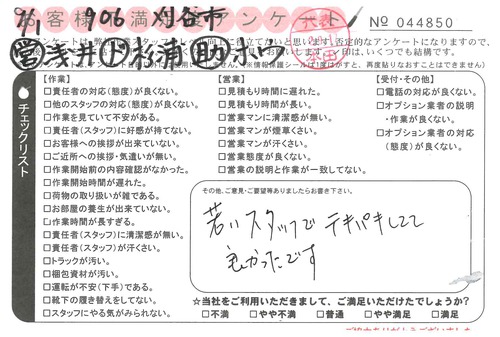 お客様満足アンケート
9/1 906 刈谷市
No 044850
営 浅井 下 杉浦 助
【作業】
□責任者の対応(態度)が良くない。
□他のスタッフの対応(態度)が良くない。
□作業を見ていて不安がある。
□責任者(スタッフ)に好感が持てない。
□お客様への挨拶が出来ていない。
□ご近所への挨拶・気遣いが無い。
□作業開始前の内容確認がなかった。
□作業開始時間が遅れた。
□荷物の取り扱いが雑である。
□お部屋の養生が出来ていない。
□作業時間が長すぎる。
□責任者(スタッフ)に清潔感が無い。
□責任者(スタッフ)が汗くさい。
□トラックが汚い。
□梱包資材が汚い。
□運転が不安(下手)である。
□靴下の履き替えをしてない。
□スタッフにやる気がみられない。
【営業】
□見積もり時間に遅れた。
□見積もり時間が長い。
□営業マンに清潔感が無い。
□営業マンが煙草くさい。
□営業マンが汗くさい。
□営業態度が良くない。
□営業の説明と作業が一致してない。
【受付・その他】
□電話の対応が良くない。
□オプション業者の説明
・作業が良くない。
□オプション業者の対応
(態度)が良くない。
チェックリスト
その他、ご意見・ご要望等ありましたらお書き下さい。
若いスタッフで テキパキしてて
良かったです
☆当社をご利用いただきまして、ご満足いただけたでしょうか?
□不満 □やや不満 □普通 □やや満足 □満足
ご協力ありがとうございました